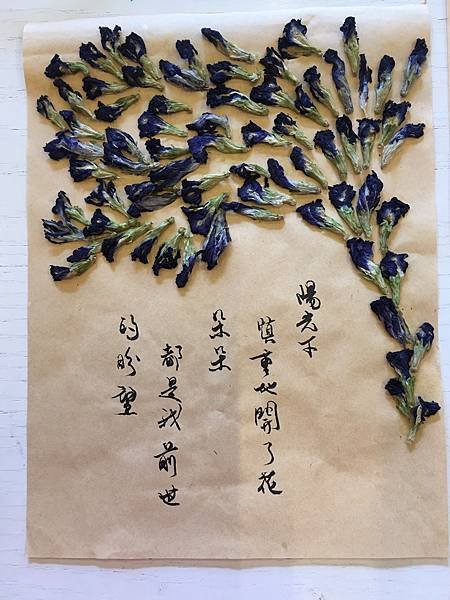 陽光下
慎重地開了花
朵朵
都是我前世
的盼望